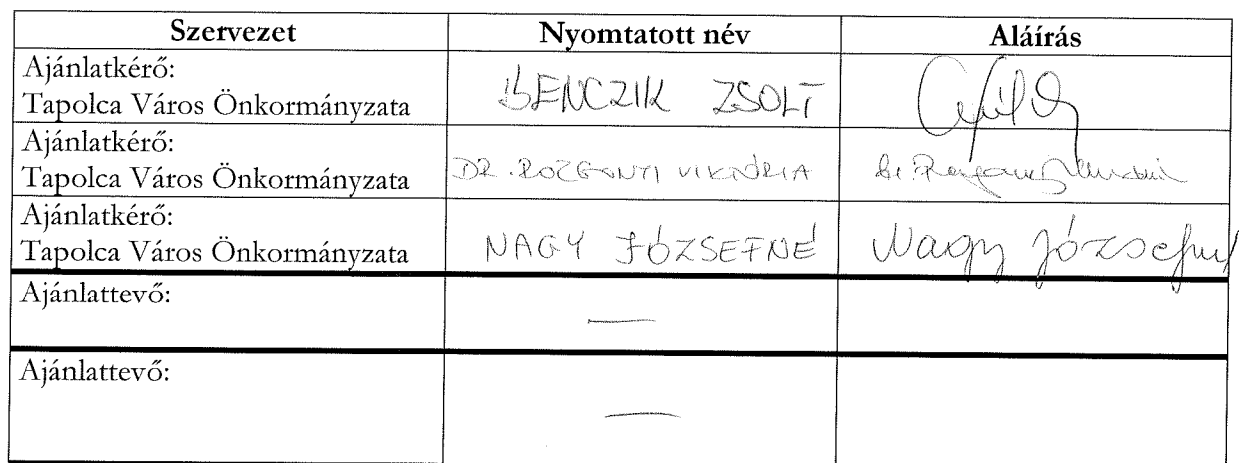 Szervezet Nyomtatott név Aláírás
Ajánlatkérő:
Tapolca Város Önkormányzata BENCZIK ZSOLT
Ajánlatkérő:
Tapolca Város Önkormányzata DR. ROZGONYI VIKTÓRIA
Ajánlatkérő:
Tapolca Város Önkormányzata NAGY JÓZSEFNÉ Nagy Józsefné
Ajánlattevő:
—
Ajánlattevő:
—